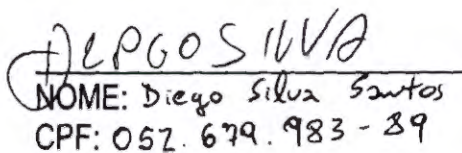 DIEGO SILVA
NOME: Diego Silva Santos
CPF: 052.679.983-89